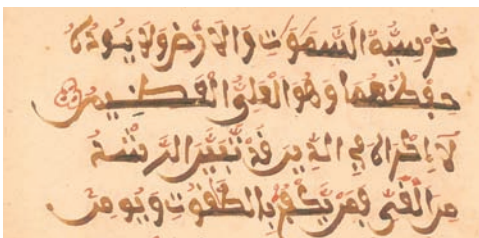 كُرْسِيُّهُ السَّمَوَتِ وَالَارْضَ وَلَا يَـُٔودُهُ
حِفْظُهُمَا وَهُوَ الْعَلِيُّ الْعَظِيمُ
لَا إِكْرَاهَ فِي الدِّينِ قَد تَّبَيَّنَ الرُّشْدُ
مِنَ الْغَيِّ فَمَنْ يَّكْفُرْ بِالطَّغُوتِ وَيُومِنْ